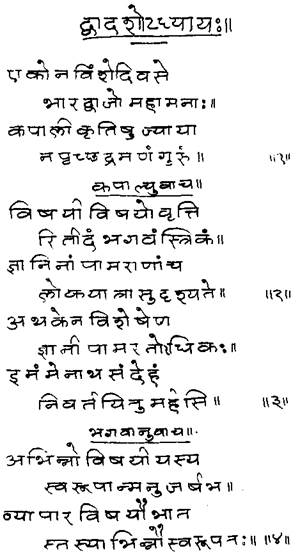 द्वादशोऽध्यायः॥
एकोनविंशेदिवसे
भारद्वाजोमहामनाः॥
कपालीकृतिषुज्याया
नपृच्छद्रमणंगुरुं॥ ॥१॥
कपाल्युवाच॥
विषयीविषयोवृत्ति
रितीदंभगवंस्त्रिकं॥
ज्ञानिनांपामराणांच
लोकयात्रासुदृश्यते॥ ॥२॥
अथकेनविशेषेण
ज्ञानीपामरतोधिकः॥
इमंमेनाथसंदेहं
निवर्तयितुमर्हसि॥ ॥३॥
भगवानुवाच॥
अभिन्नोविषयीयस्य
स्वरूपान्मनुजर्षभ॥
व्यापारविषयौभात
स्तस्याभिन्नौस्वरूपतः॥ ॥४॥